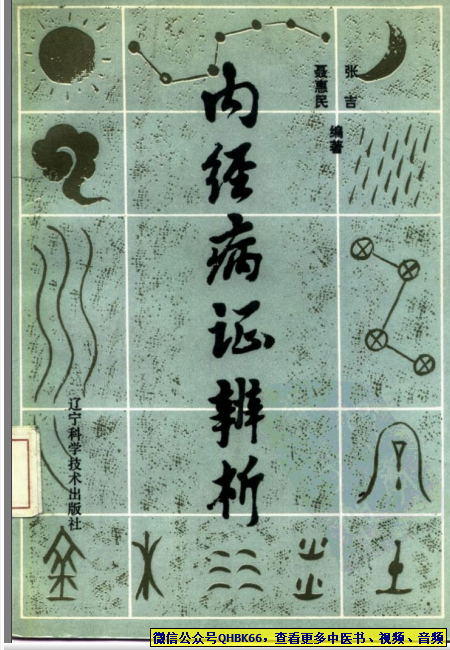 内经病证辨析
张吉
聂惠民
编著
辽宁科学技术出版社
微信公众号QHBK66，查看更多中医书、视频、音频